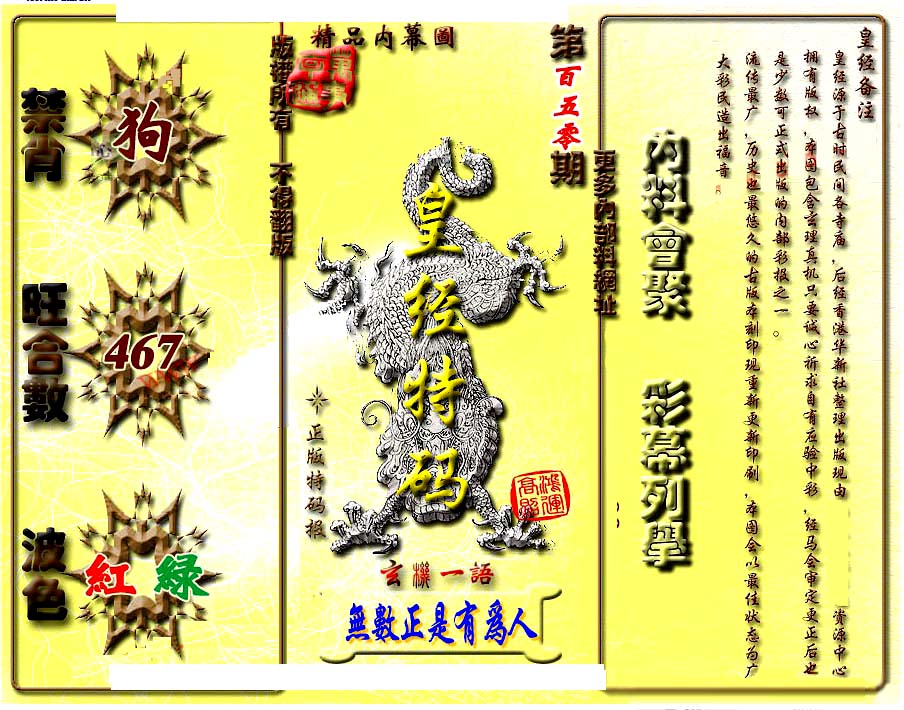 皇经备注
皇经源于古时民间各寺庙，后经香港华新社整理出版现由　资源中心
拥有版权，本图包含玄理真机只要诚心祈求自有应验中彩，经马会审定更正后也
是少数可正式出版的内部彩报之一。
流传最广，历史也最悠久的古版本刻印现重新更新印刷，本图会以最佳状态为广
大彩民造出福音
内料會聚　彩幕列舉
更多內部料網址
第百五零期
精品内幕圖
版權所有　不得翻版
皇经特码
正版特码报
鴻運高照
玄機一語
無數正是有爲人
禁肖
狗
旺合數
467
波色
紅 綠